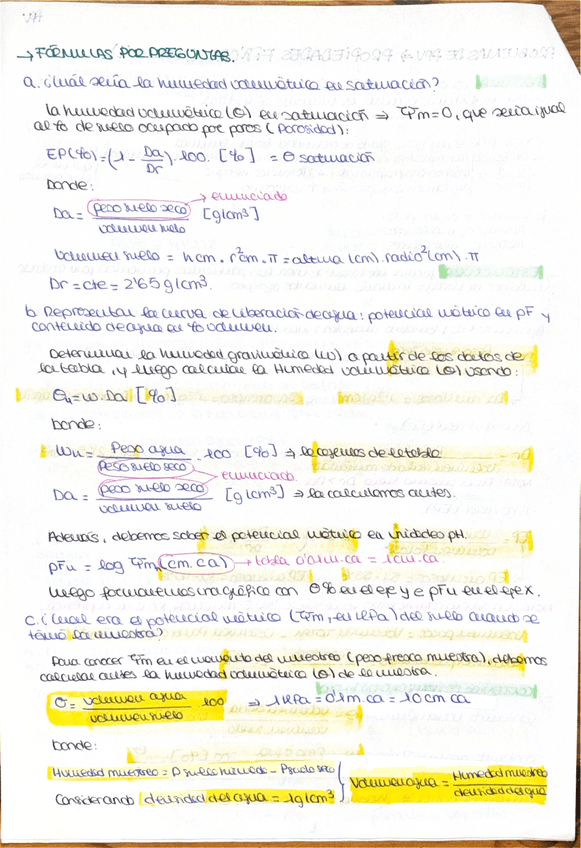 → FÓRMULAS POR PREGUNTAS.
a. ¿Cuál sería la humedad volumétrica en saturación?
La humedad volumétrica (θ) en saturación ⇒ Ψm = 0, que sería igual
al % de suelo ocupado por poros (Porosidad):
EP(%) = (1 - Da/Dr) · 100. [%] = θ saturación
Donde:
Da = peso suelo seco / volumen suelo [g/cm³] → enunciado
Volumen suelo = h cm · r² cm · π = altura (cm) · radio² (cm) · π
Dr = cte = 2'65 g/cm³.
b. Representar la curva de liberación de agua: potencial mátrico en pF y
contenido de agua en % volumen.
Determinar la humedad gravimétrica (w) a partir de los datos de
la tabla, y luego calcular la Humedad volumétrica (θ) usando:
θn = w · Da [%]
Donde:
Wn = Peso agua / Peso suelo seco · 100 [%] ⇒ la cogemos de la tabla
→ enunciado.
Da = peso suelo seco / volumen suelo [g/cm³] ⇒ la calculamos antes.
Además, debemos saber el potencial mátrico en unidades pH.
pFn = log Ψm (cm. ca) → tabla 0'01m·ca = 1cm·ca.
Luego formaremos una gráfica con θ% en el eje y e pFn en el eje X.
c. ¿Cuál era el potencial mátrico (Ψm, en kPa) del suelo cuando se
tomó la muestra?
Para conocer Ψm en el momento del muestreo (peso fresco muestra), debemos
calcular antes la humedad volumétrica (θ) de la muestra.
θ = volumen agua / volumen suelo · 100 ⇒ 1 kPa = 0'1m ca = 10 cm ca
Donde:
Humedad muestreo = P suelo húmedo - P suelo seco
Considerando densidad del agua = 1g/cm³
Volumen agua = Humedad muestreo / densidad del agua